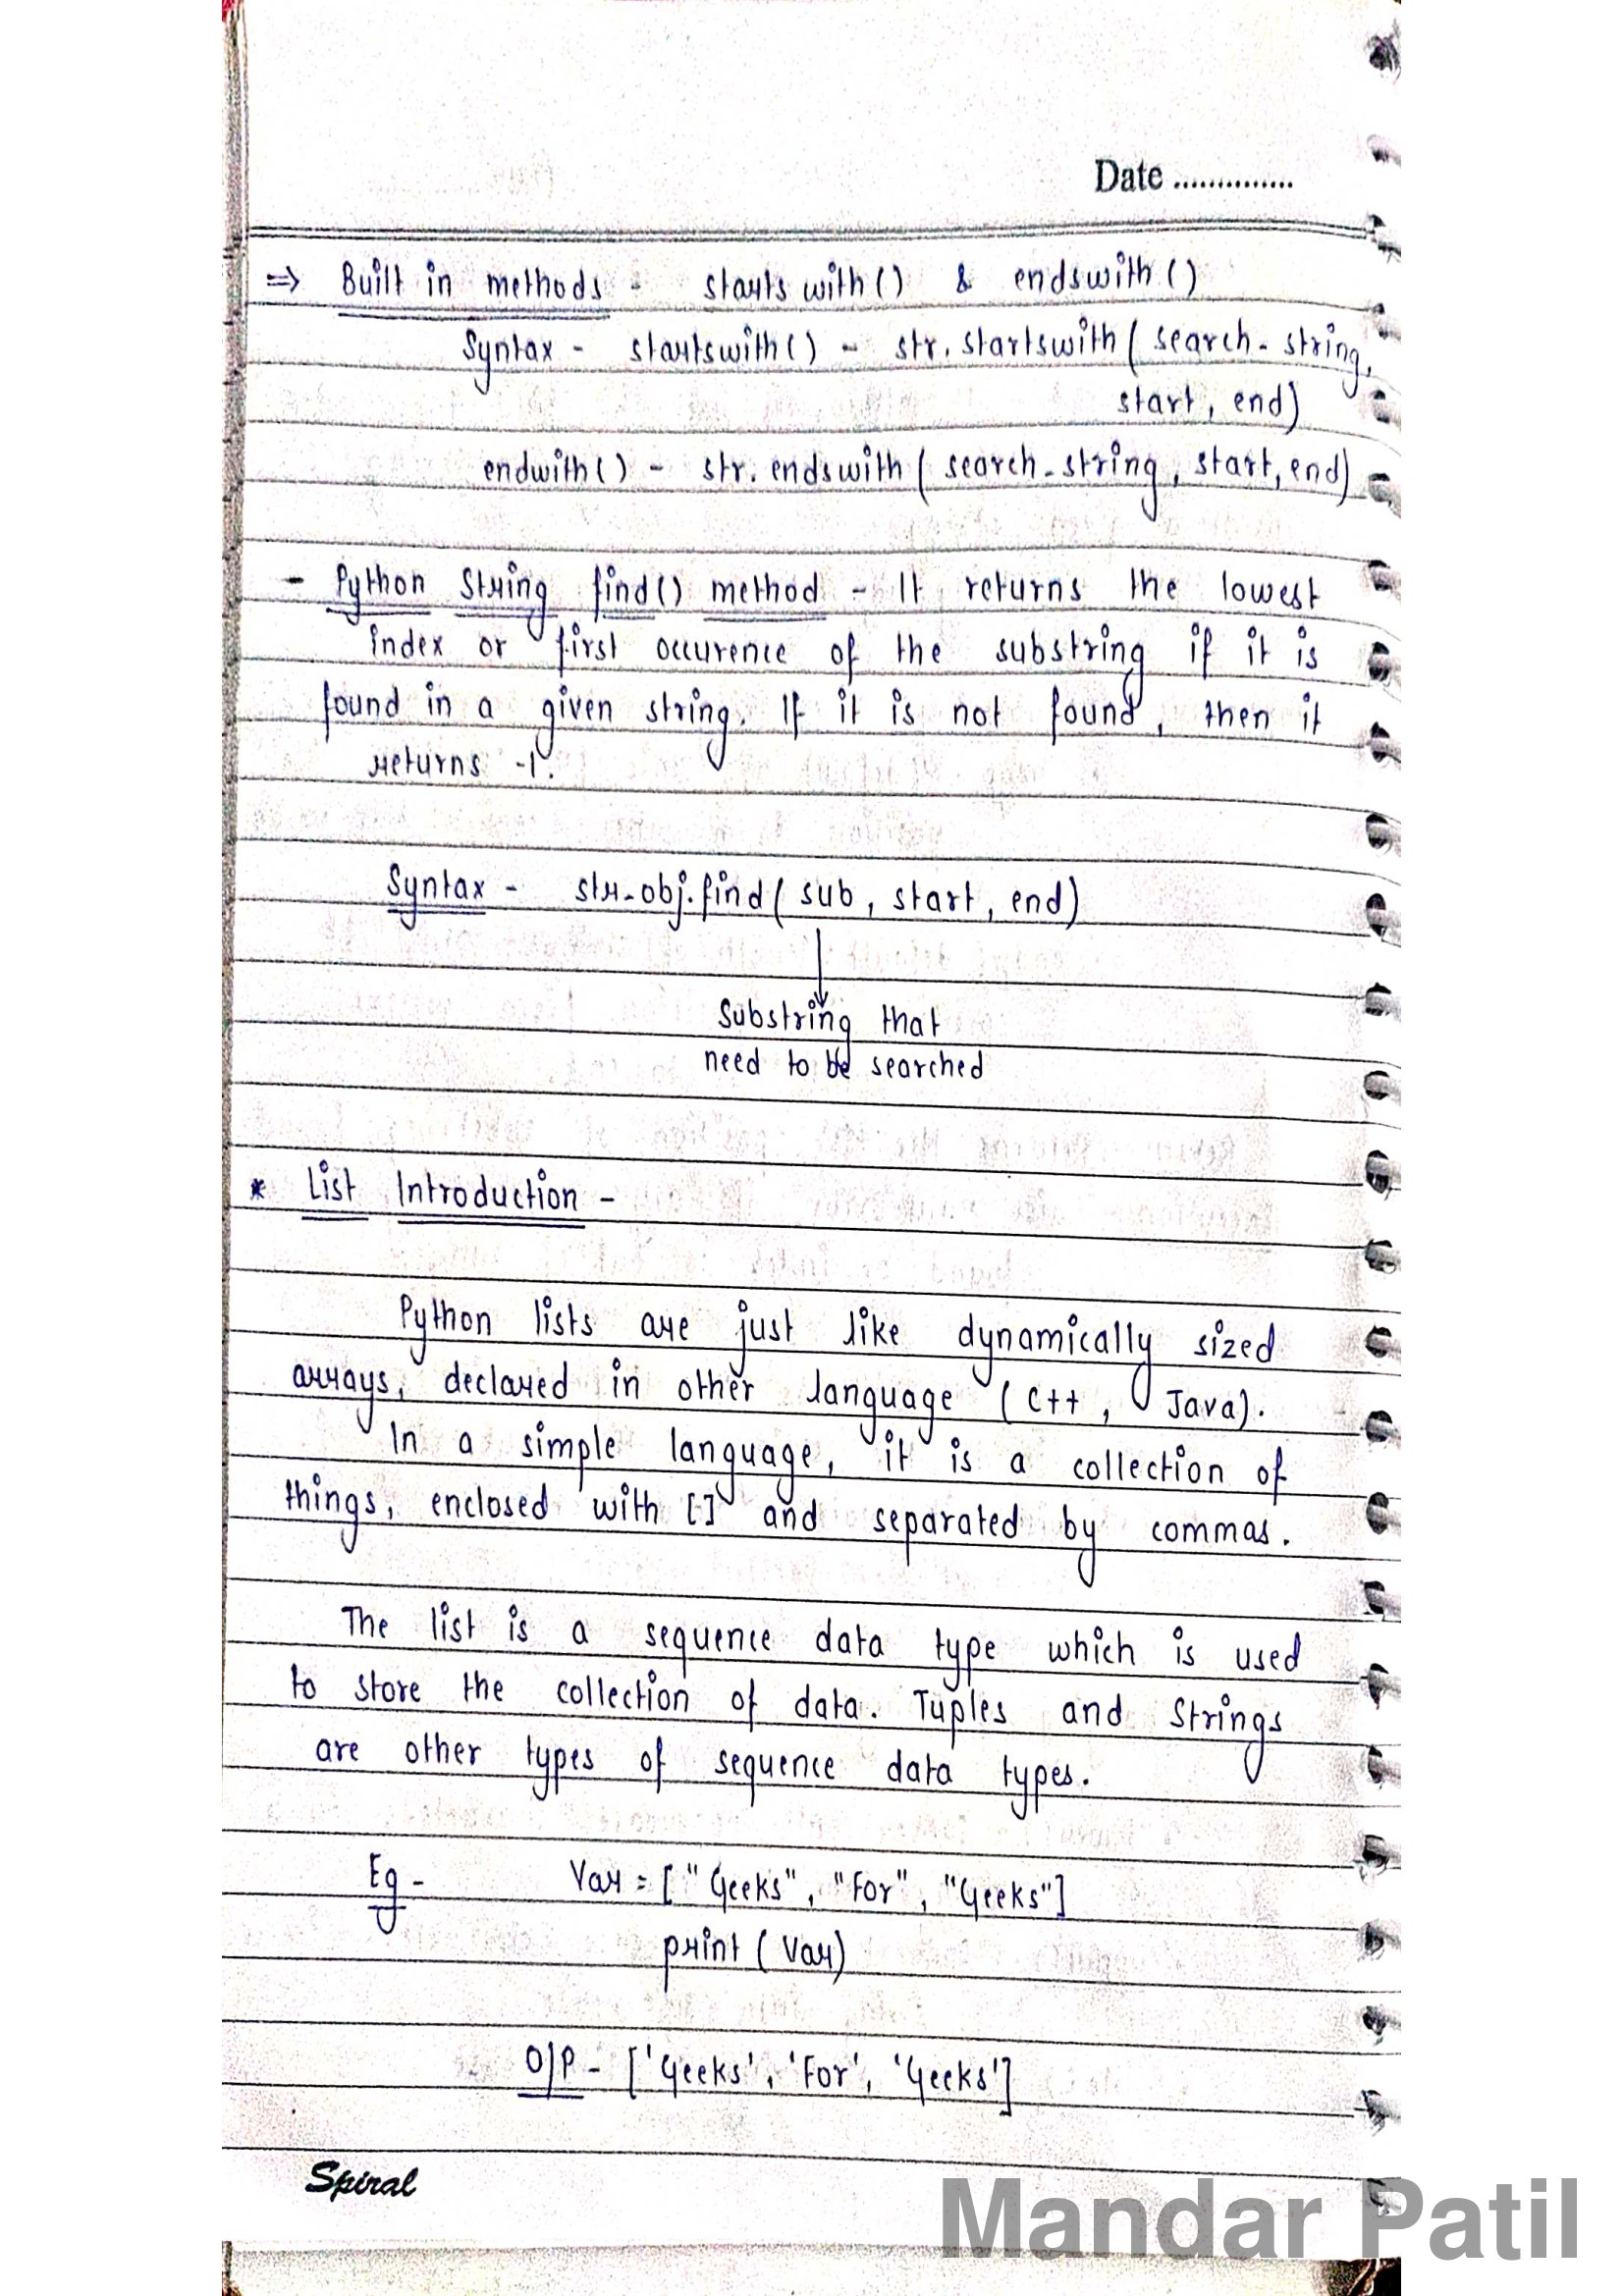 Date ..............
=> Built in methods - starts with() & endswith()
Syntax - startswith() - str.startswith( search_string,
start, end)
endwith() - str.endswith( search_string, start, end)
- Python String find() method - It returns the lowest
index or first occurence of the substring if it is
found in a given string. If it is not found, then it
returns -1.
Syntax - str_obj.find( sub, start, end)
Substring that
need to be searched
* List Introduction -
Python lists are just like dynamically sized
arrays, declared in other language (C++, Java).
In a simple language, it is a collection of
things, enclosed with [] and separated by commas.
The list is a sequence data type which is used
to store the collection of data. Tuples and Strings
are other types of sequence data types.
Eg - Var = ["Geeks", "For", "Geeks"]
print (Var)
O/P - ['Geeks', 'For', 'Geeks']
Spiral
Mandar Patil